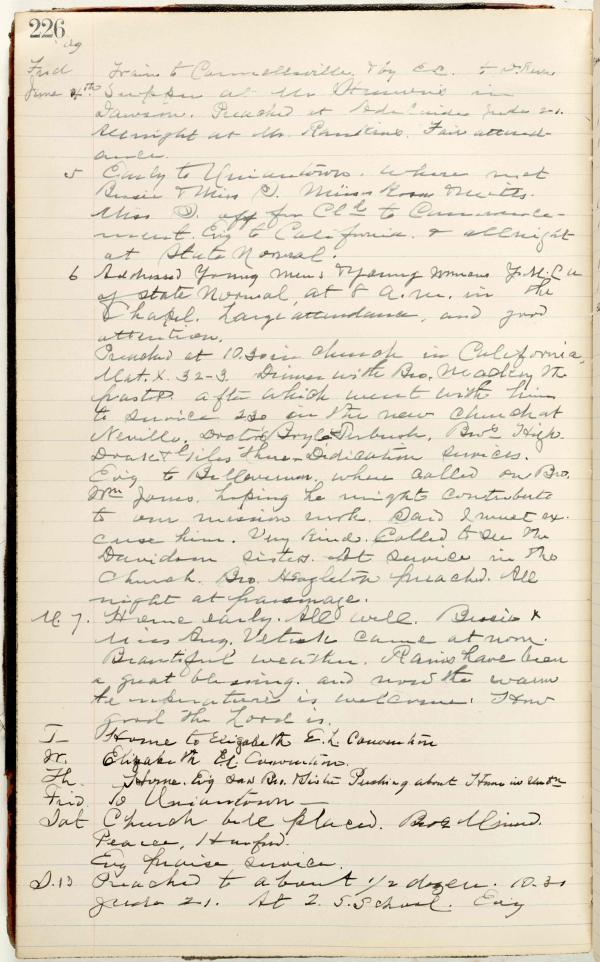 226
Frid Train to Connellsville, & by E.C. to
June 4th Supper at Mr in
Dawson. Preached at Jude 21.
All night at Mr. Rankins. Fair attend-
ance.
5 Early to Uniontown. where met
Bessie & Miss S. Miss
Miss S. off for to Commence-
ment. Evg to California. & all night
at State Normal.
6 Addressed Young Mens & Young Womens Y.M.C.A
of State Normal, at 8 a.m. in the
Chapel. Large attendance, and good
attention.
Preached at 10.30 in church in California,
Mat. X. 32-3. Dinner with Bro. the
pastor. after which went with him
to service 230 in the new church at
Neville, Doctors Boyle Bros High.
Drake & Giles there. Dedication services.
Evg to Bellevernon, where called on Bro.
Wm Jones. hoping he might contribute
to our mission work. Said I must ex-
cuse him. Very kind. Called to see the
Davidson sisters. At service in the
Church. Bro. Hazleton preached. All
night at parsonage.
M. 7. Home early. All well. Bessie &
Miss Aug. came at noon.
Beautiful weather. Rains have been
a great blessing. and now the warm
temperature is welcome. How
good the Lord is.
T Home to Elizabeth E.L. Convention
W. Elizabeth EL Convention.
Th. Home. Evg saw Bro. about Home in
Frid To Uniontown —
Sat Church bell placed. Bros
Pearce,
Evg praise service.
S. 13 Preached to about 1/2 dozen. 10.30
Jude 21. At 2. S. School. Evg